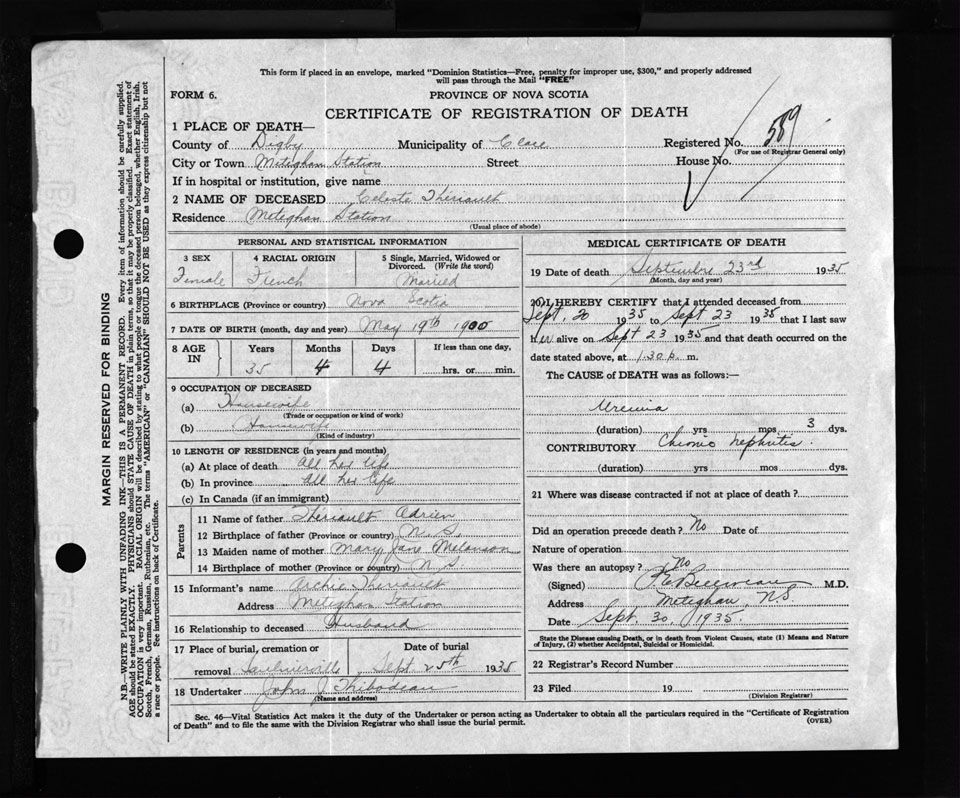 This form if placed in an envelope, marked "Dominion Statistics—Free, penalty for improper use, $300," and properly addressed
will pass through the Mail "FREE"
FORM 6.
PROVINCE OF NOVA SCOTIA
CERTIFICATE OF REGISTRATION OF DEATH
1 PLACE OF DEATH—
County of Digby Municipality of Clare Registered No. 589
(For use of Registrar General only)
City or Town Meteghan Station Street House No.
If in hospital or institution, give name
2 NAME OF DECEASED Celeste Thériault
Residence Meteghan Station
(Usual place of abode)
PERSONAL AND STATISTICAL INFORMATION
3 SEX 4 RACIAL ORIGIN 5 Single, Married, Widowed or
Divorced. (Write the word)
Female French Married
6 BIRTHPLACE (Province or country) Nova Scotia
7 DATE OF BIRTH (month, day and year) May 19th 1900
8 AGE IN Years Months Days If less than one day,
35 4 4 hrs. or min.
9 OCCUPATION OF DECEASED
(a) Housewife
(Trade or occupation or kind of work)
(b) Housewife
(Kind of industry)
10 LENGTH OF RESIDENCE (in years and months)
(a) At place of death All her life
(b) In province All her life
(c) In Canada (if an immigrant)
Parents
11 Name of father Theriault Adrien
12 Birthplace of father (Province or country) N. S.
13 Maiden name of mother Mary Jane Melanson
14 Birthplace of mother (Province or country) N S.
15 Informant's name Archie Theriault
Address Meteghan Station
16 Relationship to deceased Husband
17 Place of burial, cremation or Date of burial
removal Saulnierville Sept 25th 1935
18 Undertaker John J Thibodeau
(Name and address)
MEDICAL CERTIFICATE OF DEATH
19 Date of death Septembre 23rd 1935
(Month, day and year)
20 I HEREBY CERTIFY that I attended deceased from
Sept. 20 1935 to Sept 23 1935 that I last saw
her alive on Sept 23 1935 and that death occurred on the
date stated above, at 1.30 p. m.
The CAUSE of DEATH was as follows:—
Uremia
(duration) yrs mos 3 dys.
CONTRIBUTORY Chronic nephritis.
(duration) yrs mos dys.
21 Where was disease contracted if not at place of death?
Did an operation precede death? No Date of
Nature of operation
Was there an autopsy? No
(Signed) Belliveau M.D.
Address Meteghan, NS
Date Sept. 30, 1935.
State the Disease causing Death, or in death from Violent Causes, state (1) Means and Nature
of Injury, (2) whether Accidental, Suicidal or Homicidal.
22 Registrar's Record Number
23 Filed 19
(Division Registrar)
Sec. 46—Vital Statistics Act makes it the duty of the Undertaker or person acting as Undertaker to obtain all the particulars required in the "Certificate of Registration
of Death" and to file the same with the Division Registrar who shall issue the burial permit.
(OVER)
MARGIN RESERVED FOR BINDING
N.B.—WRITE PLAINLY WITH UNFADING INK—THIS IS A PERMANENT RECORD. Every item of information should be carefully supplied.
AGE should be stated EXACTLY. PHYSICIANS should STATE CAUSE OF DEATH in plain terms, so that it may be properly classified. Exact statement of
OCCUPATION is very important. RACIAL ORIGIN will be described by stating to what people or tongue the deceased person belonged, whether English, Irish,
Scotch, French, German, Russian, Ruthenian, etc. The terms "AMERICAN" or "CANADIAN" SHOULD NOT BE USED as they express citizenship but not
a race or people. See instructions on back of Certificate.